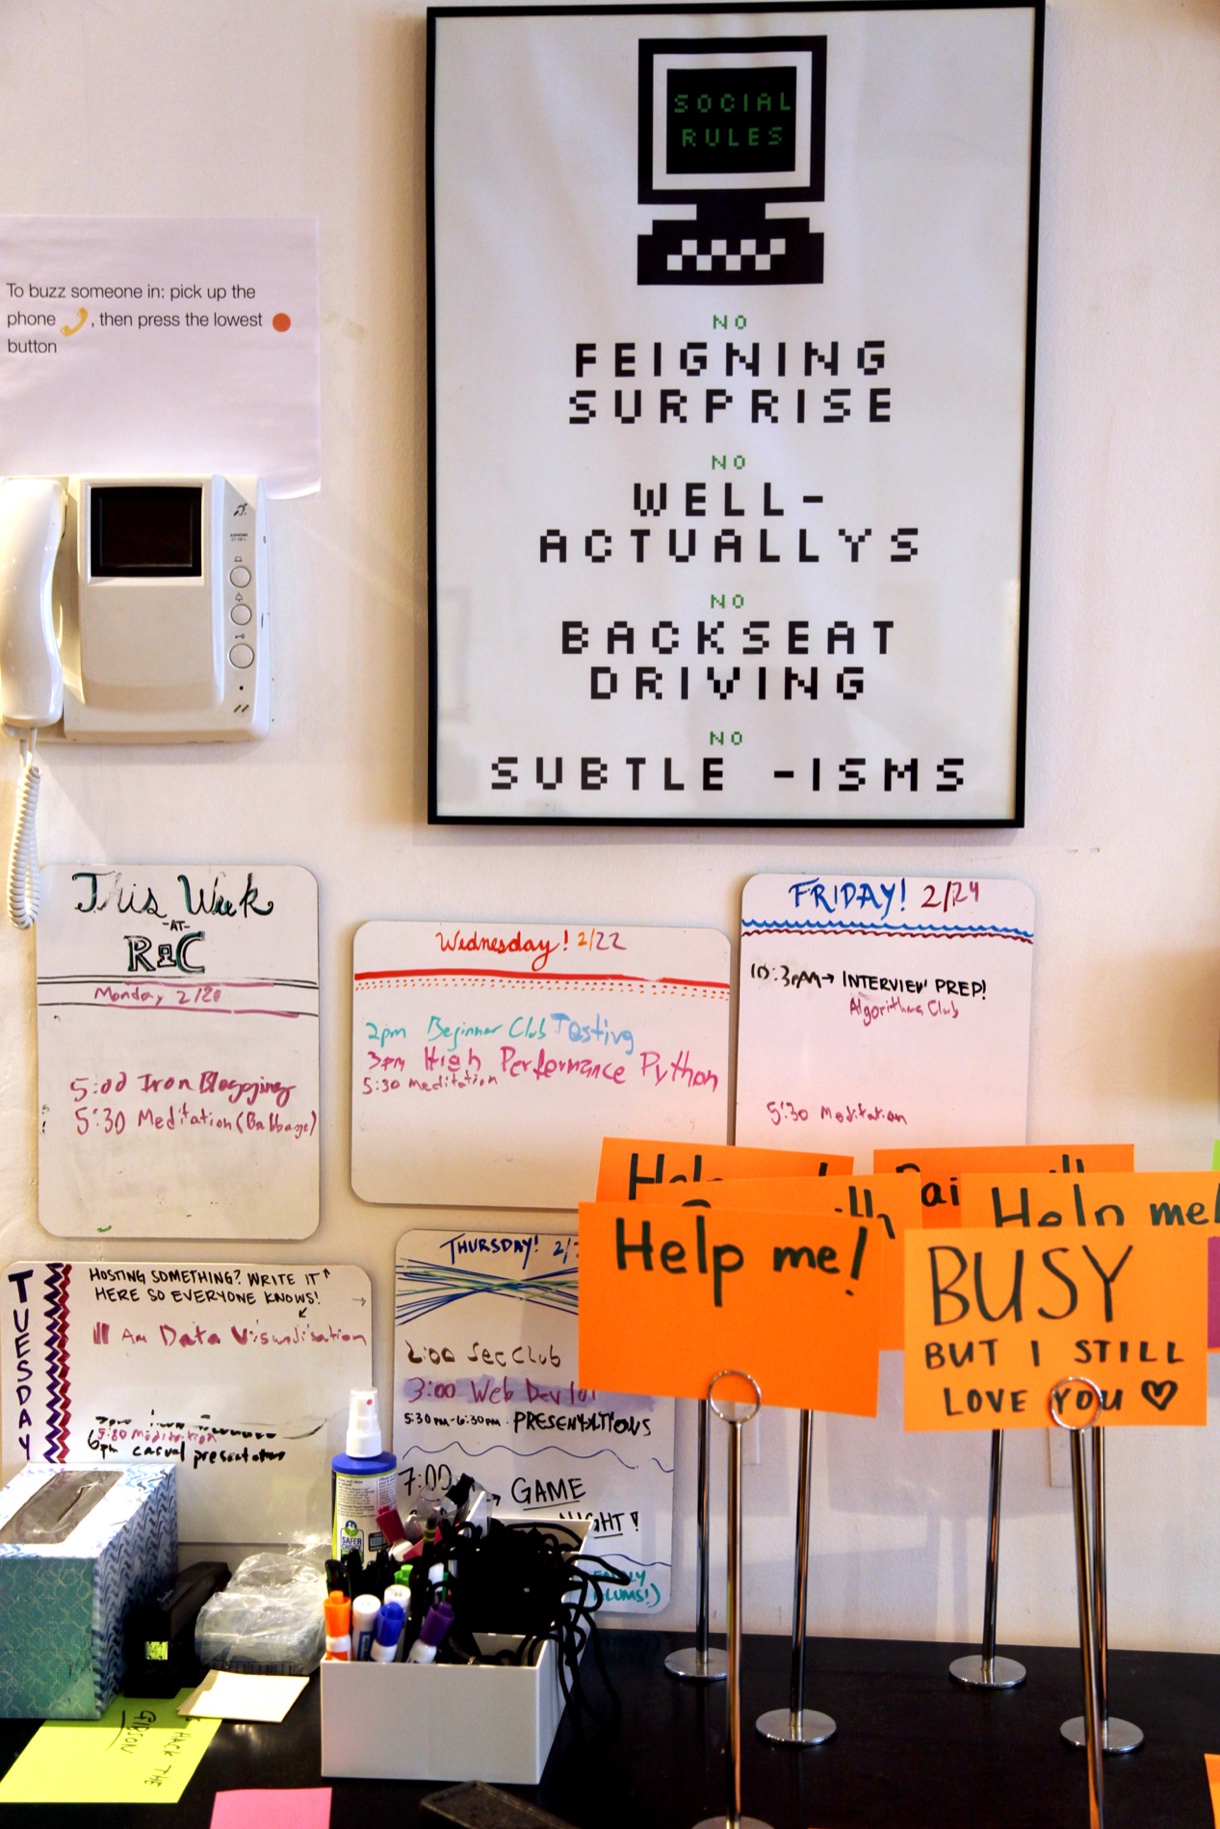 SOCIAL
RULES
NO
FEIGNING
SURPRISE
NO
WELL-
ACTUALLYS
NO
BACKSEAT
DRIVING
NO
SUBTLE -ISMS
To buzz someone in: pick up the
phone , then press the lowest
button
This Week
-AT-
R&C
Monday 2/20
5:00 Iron Blogging
5:30 Meditation (Babbage)
Wednesday! 2/22
2pm Beginner Club Testing
3pm High Performance Python
5:30 meditation
FRIDAY! 2/24
INTERVIEW PREP!
Algorithms Club
5:30 Meditation
TUESDAY
HOSTING SOMETHING? WRITE IT
HERE SO EVERYONE KNOWS!
11 Am Data Visualisation
5:30 Meditation
6pm casual presentations
THURSDAY! 2/
2:00 Sec Club
3:00 Web Dev
5:30PM-6:30PM PRESENTATIONS
7:00
GAME
NIGHT!
Help me!
Help me!
BUSY
BUT I STILL
LOVE YOU ♡
SAFER
HACK THE
GIBSON